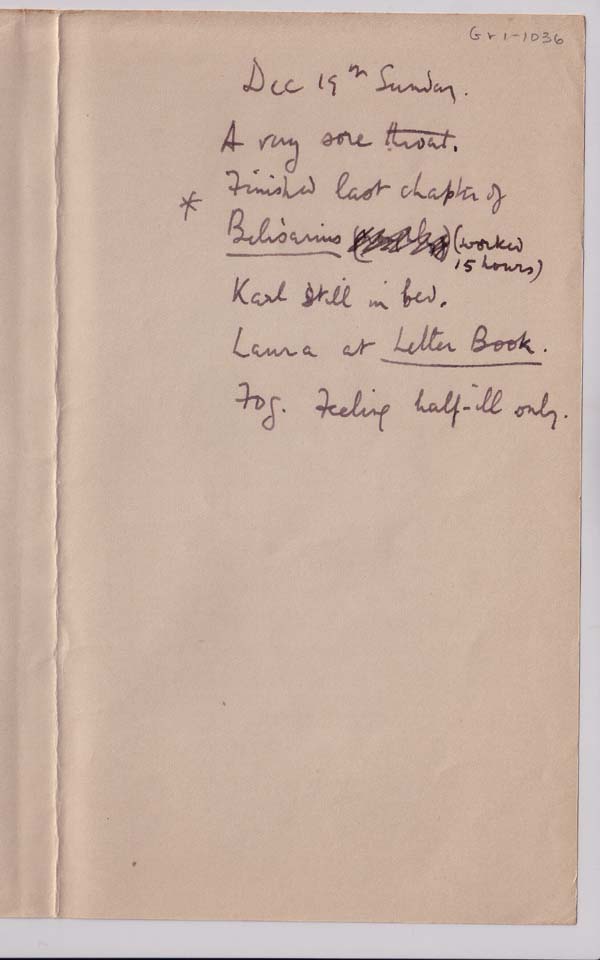 Gr1-1036
Dec 19th Sunday.
A very sore throat.
Finished last chapter of
* Belisarius (worked
15 hours)
Karl still in bed.
Laura at Letter Book.
Fog. Feeling half-ill only.